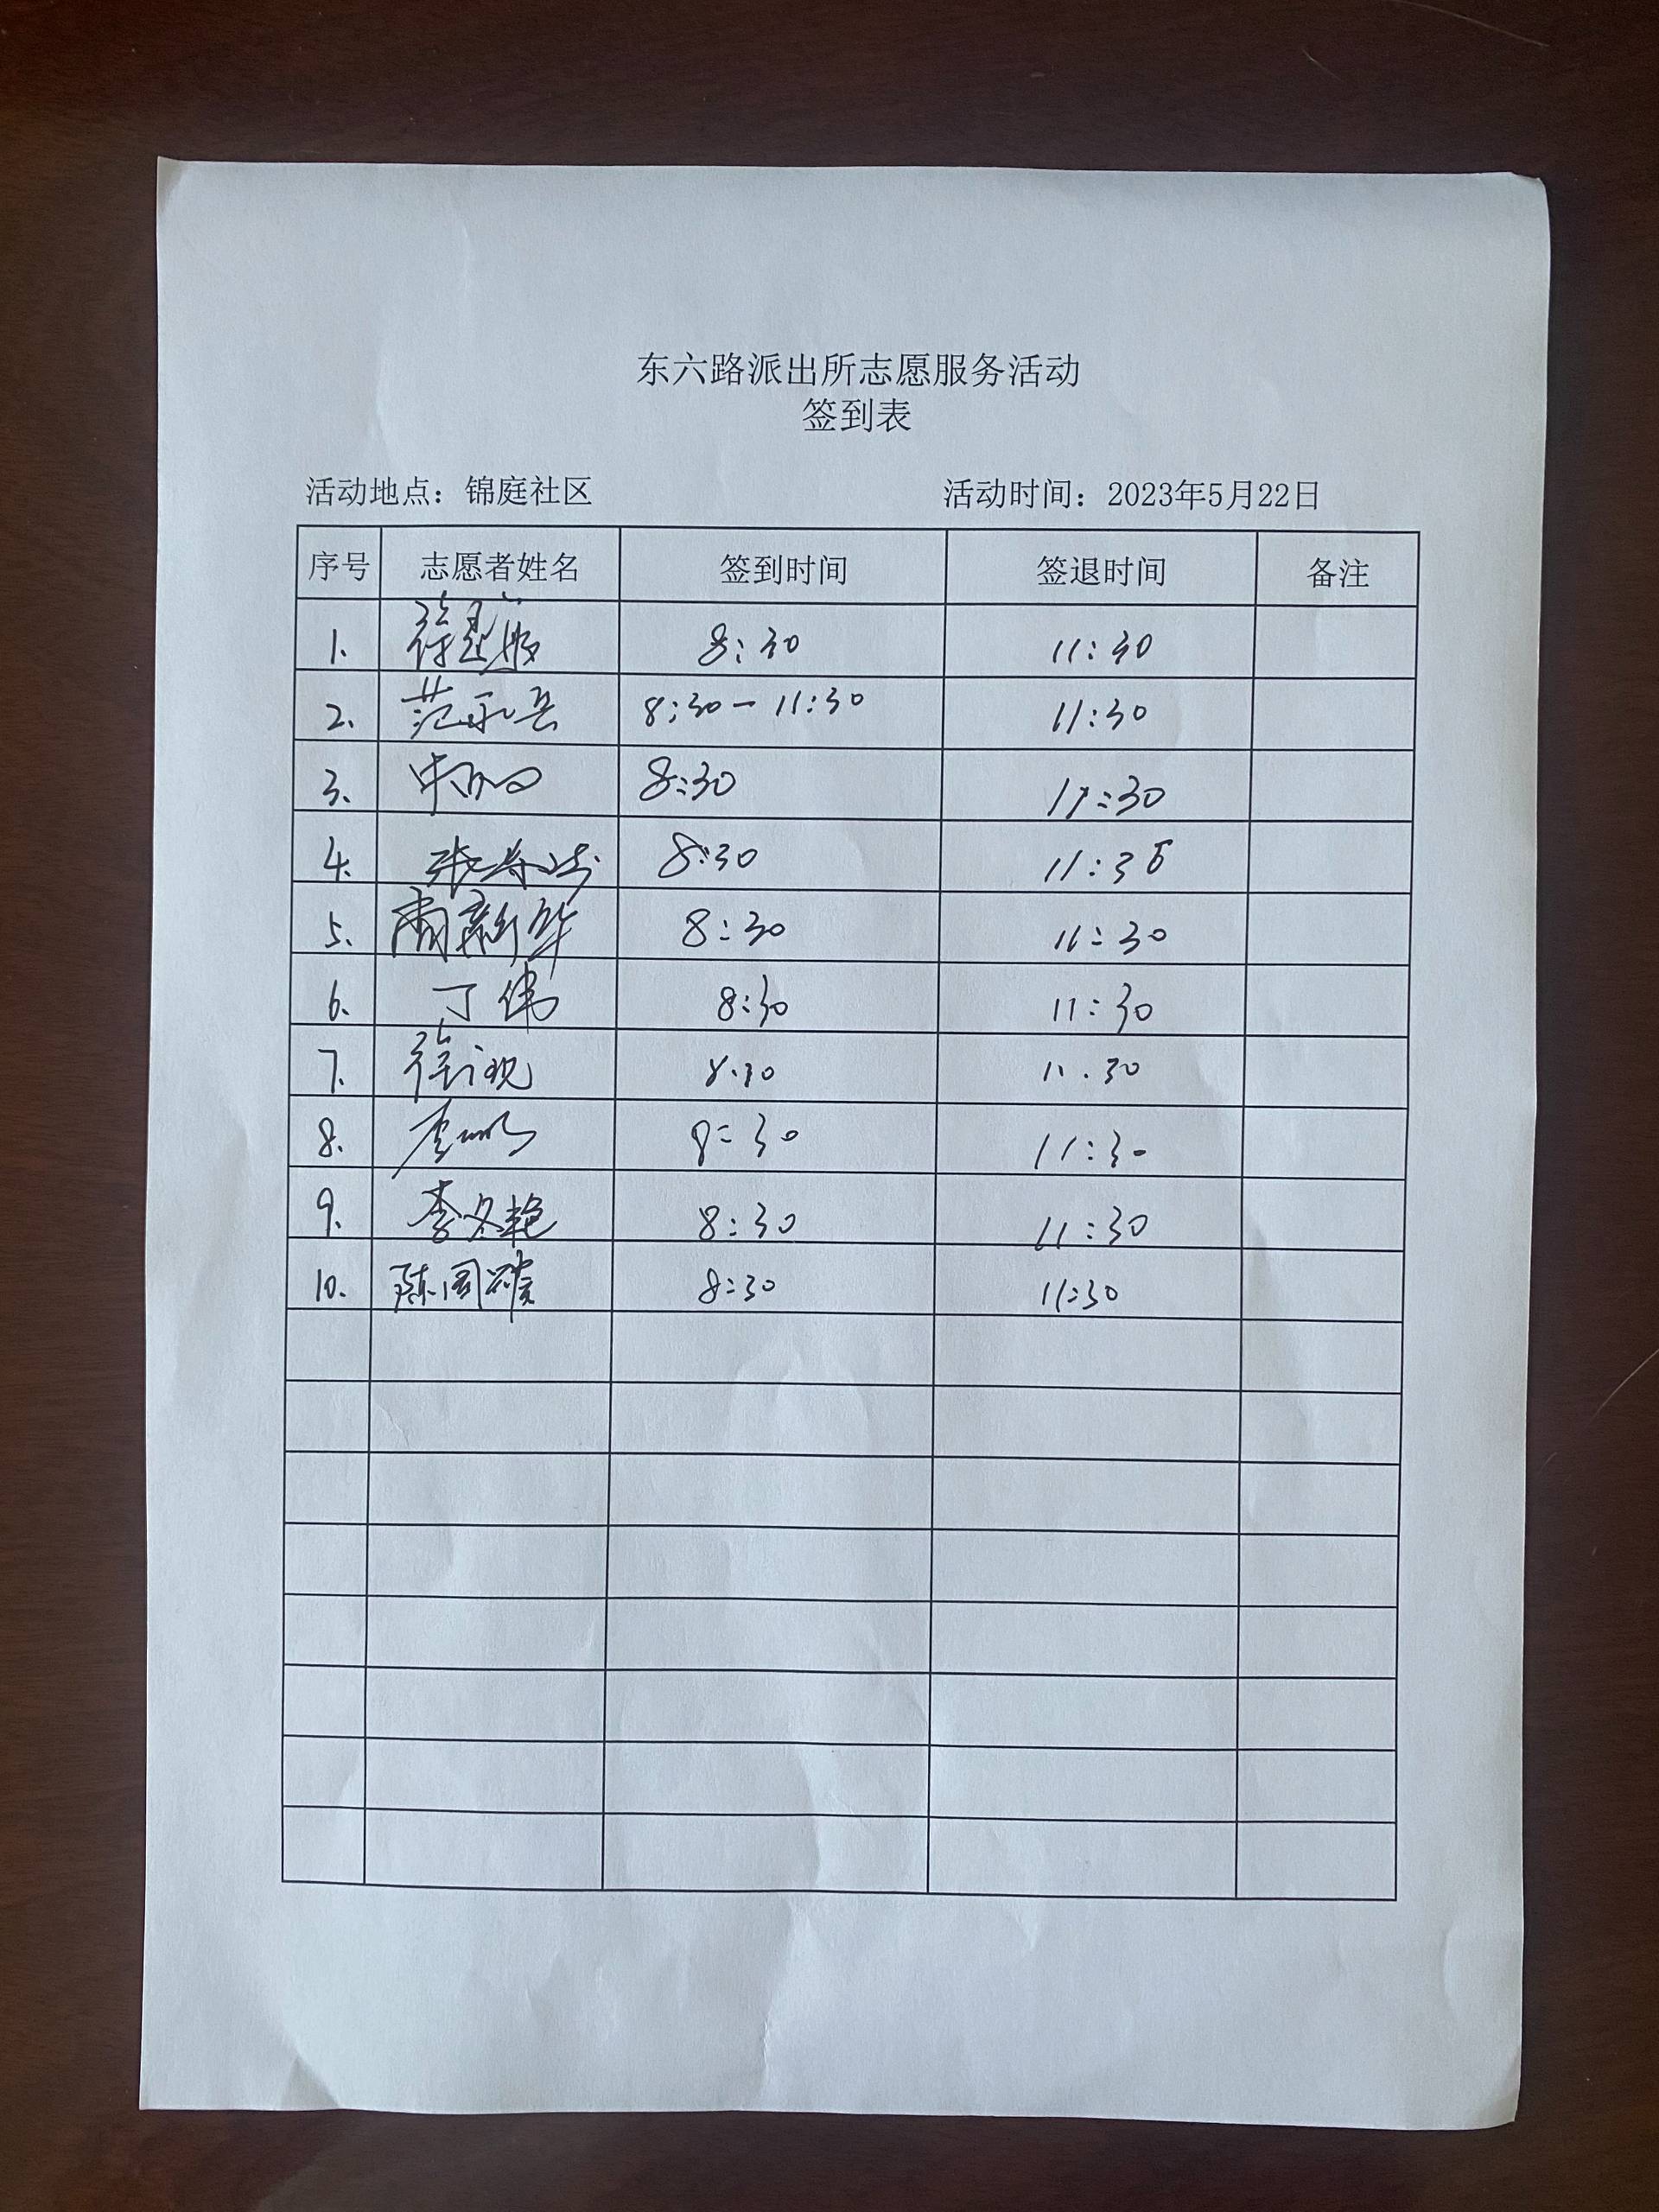 东六路派出所志愿服务活动
签到表
活动地点：锦庭社区 活动时间：2023年5月22日
序号 志愿者姓名 签到时间 签退时间 备注
1. 8:30 11:30
2. 范永兵 8:30-11:30 11:30
3. 8:30 11:30
4. 8:30 11:30
5. 8:30 11:30
6. 丁伟 8:30 11:30
7. 8.30 11.30
8. 8:30 11:30
9. 李冬艳 8:30 11:30
10. 8:30 11:30